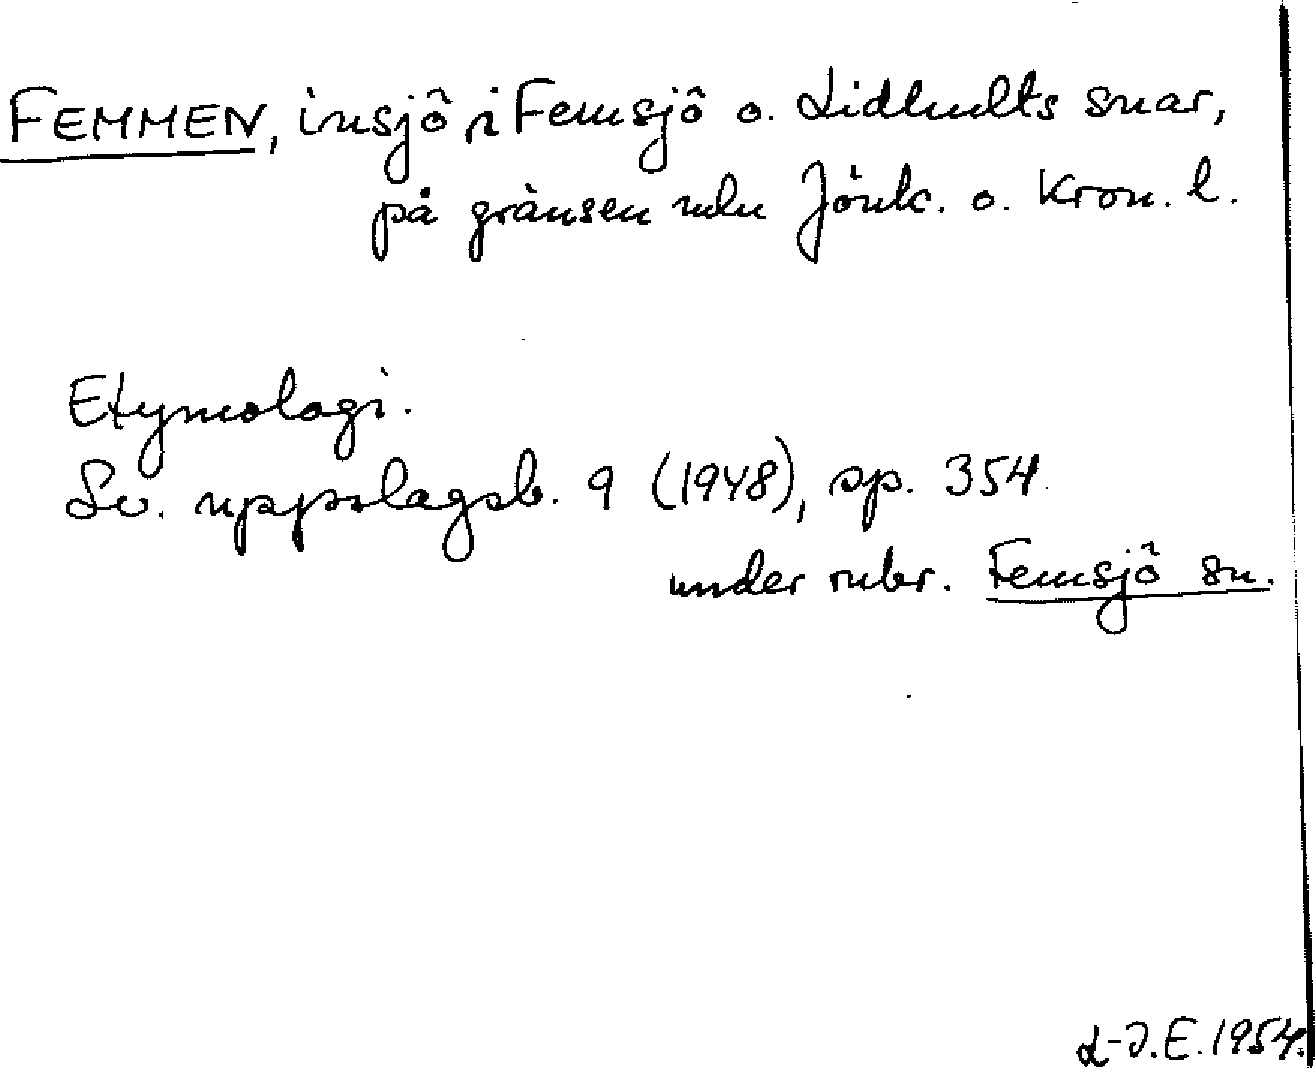 FEMMEN, insjö i Femsjö o. Lidhults snar,
på gränsen mln Jönk. o. Kron. l.
Etymologi.
Sv. uppslagsb. 9 (1948), sp. 354.
under rubr. Femsjö sn.
L-J.E. 1954.